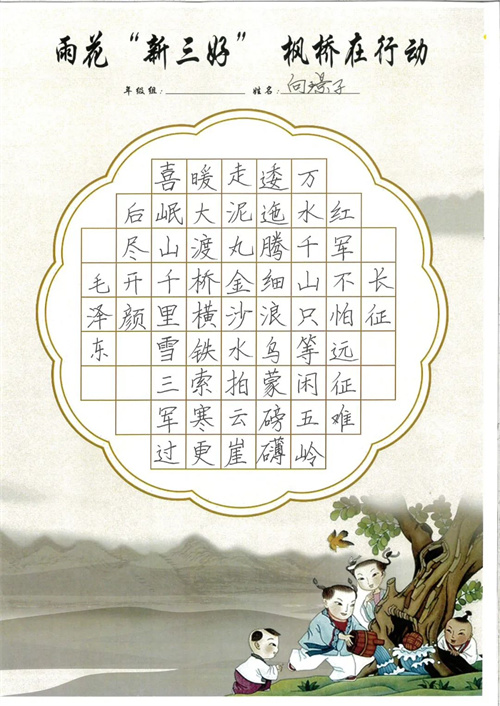 雨花“新三好” 枫桥在行动
年级组： 姓名：向璟子
长征
红军不怕远征难
万水千山只等闲五岭
逶迤腾细浪乌蒙磅礴
走泥丸金沙水拍云崖
暖大渡桥横铁索寒更
喜岷山千里雪三军过
后尽开颜
毛泽东